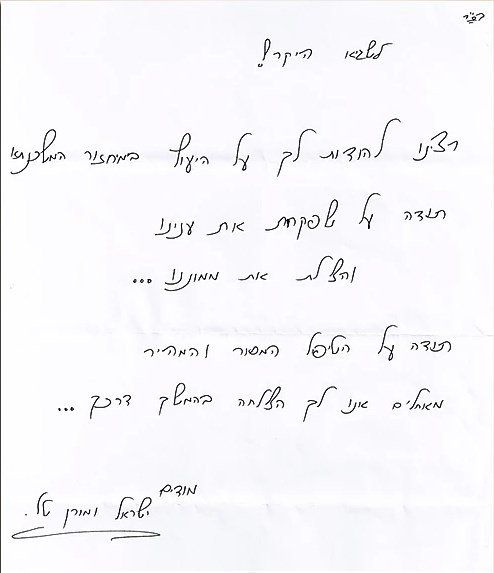 בס"ד
לשביא היקר!
רצינו להודות לך על היעוץ במחזור המשכנתא
תודה על שפקחת את עינינו
והצלת את ממוננו ...
תודה על הטיפול המסור והמהיר
מאחלים אנו לך הצלחה בהמשך דרכך ...
מודים
ישראל ומורן טל.